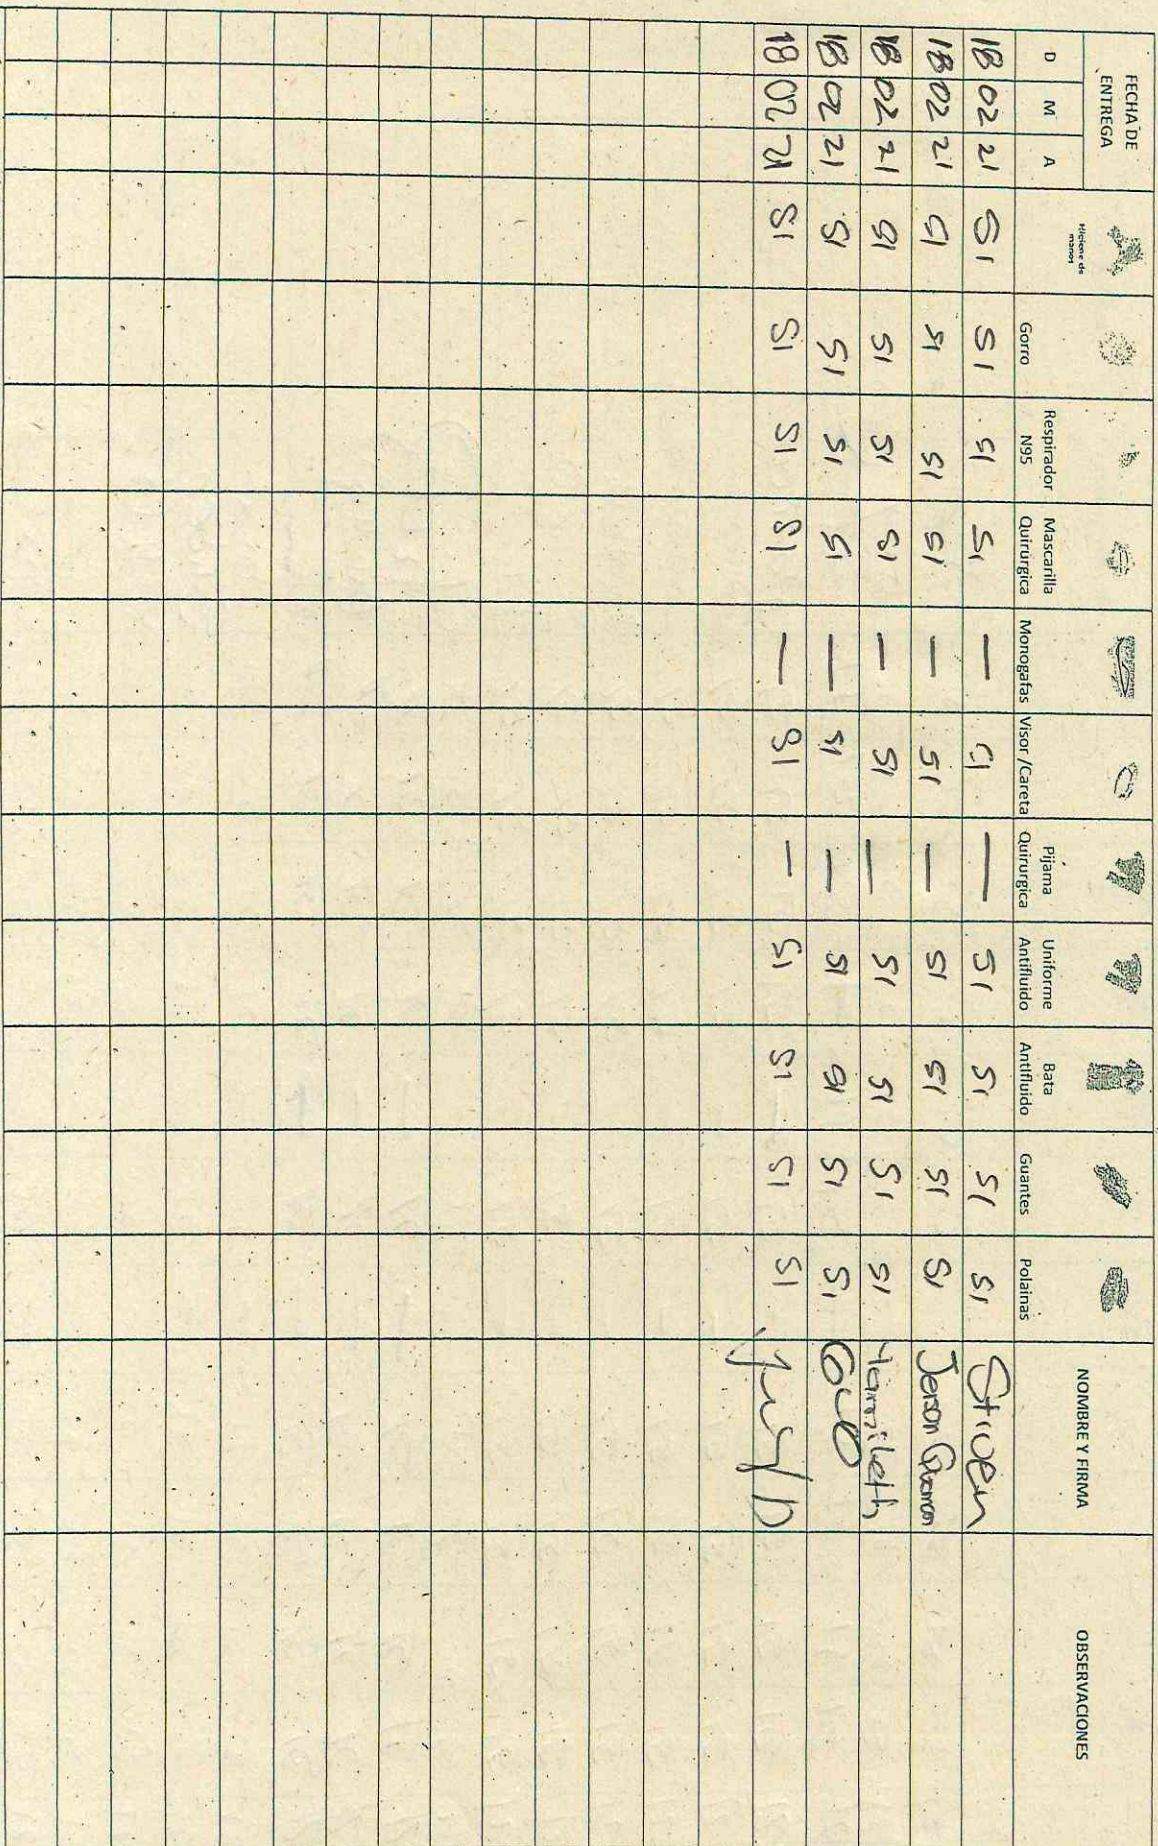 FECHA DE ENTREGA
D M A
Higiene de manos
Gorro
Respirador N95
Mascarilla Quirurgica
Monogafas
Visor /Careta
Pijama Quirurgica
Uniforme Antifluido
Bata Antifluido
Guantes
Polainas
NOMBRE Y FIRMA
OBSERVACIONES
18 02 21 SI SI SI SI — SI — SI SI SI SI Stiven
18 02 21 SI SI SI SI — SI — SI SI SI SI Jerson
18 02 21 SI SI SI SI — SI — SI SI SI SI Yamileth
18 02 21 SI SI SI SI — SI — SI SI SI SI
18 02 21 SI SI SI SI — SI — SI SI SI SI